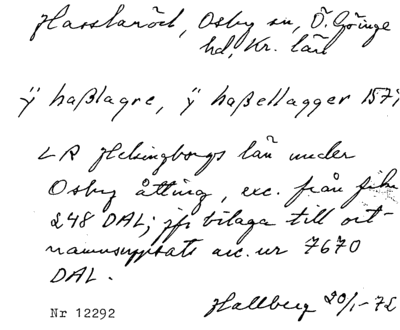 Hasslaröd, Osby sn, Ö. Göinge
hd, Kr. län
ÿ haßlagre, ÿ haßellagger 157
LR Helsingborgs län under
Osby åtting, exc. från
248 DAL; jfr bilaga till ort-
namnsuppsats acc. nr 7670
DAL.
Hallberg 20/1-72
Nr 12292